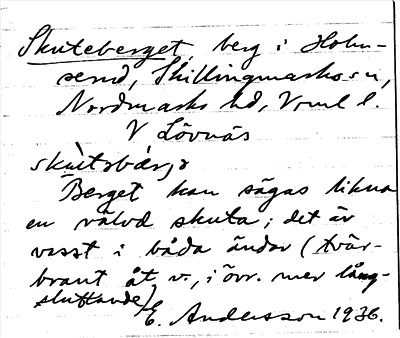 Skuteberget, berg i Holm-
send, Skillingmarks sn,
Nordmarks hd, Vrml l.
V Lövnäs
skùtsbǽrjə
Berget kan sägas likna
en välvd skuta; det är
vasst i båda ändar (tvär-
brant åt v., i övr. mer lång-
sluttande)
E. Andersson 1936.